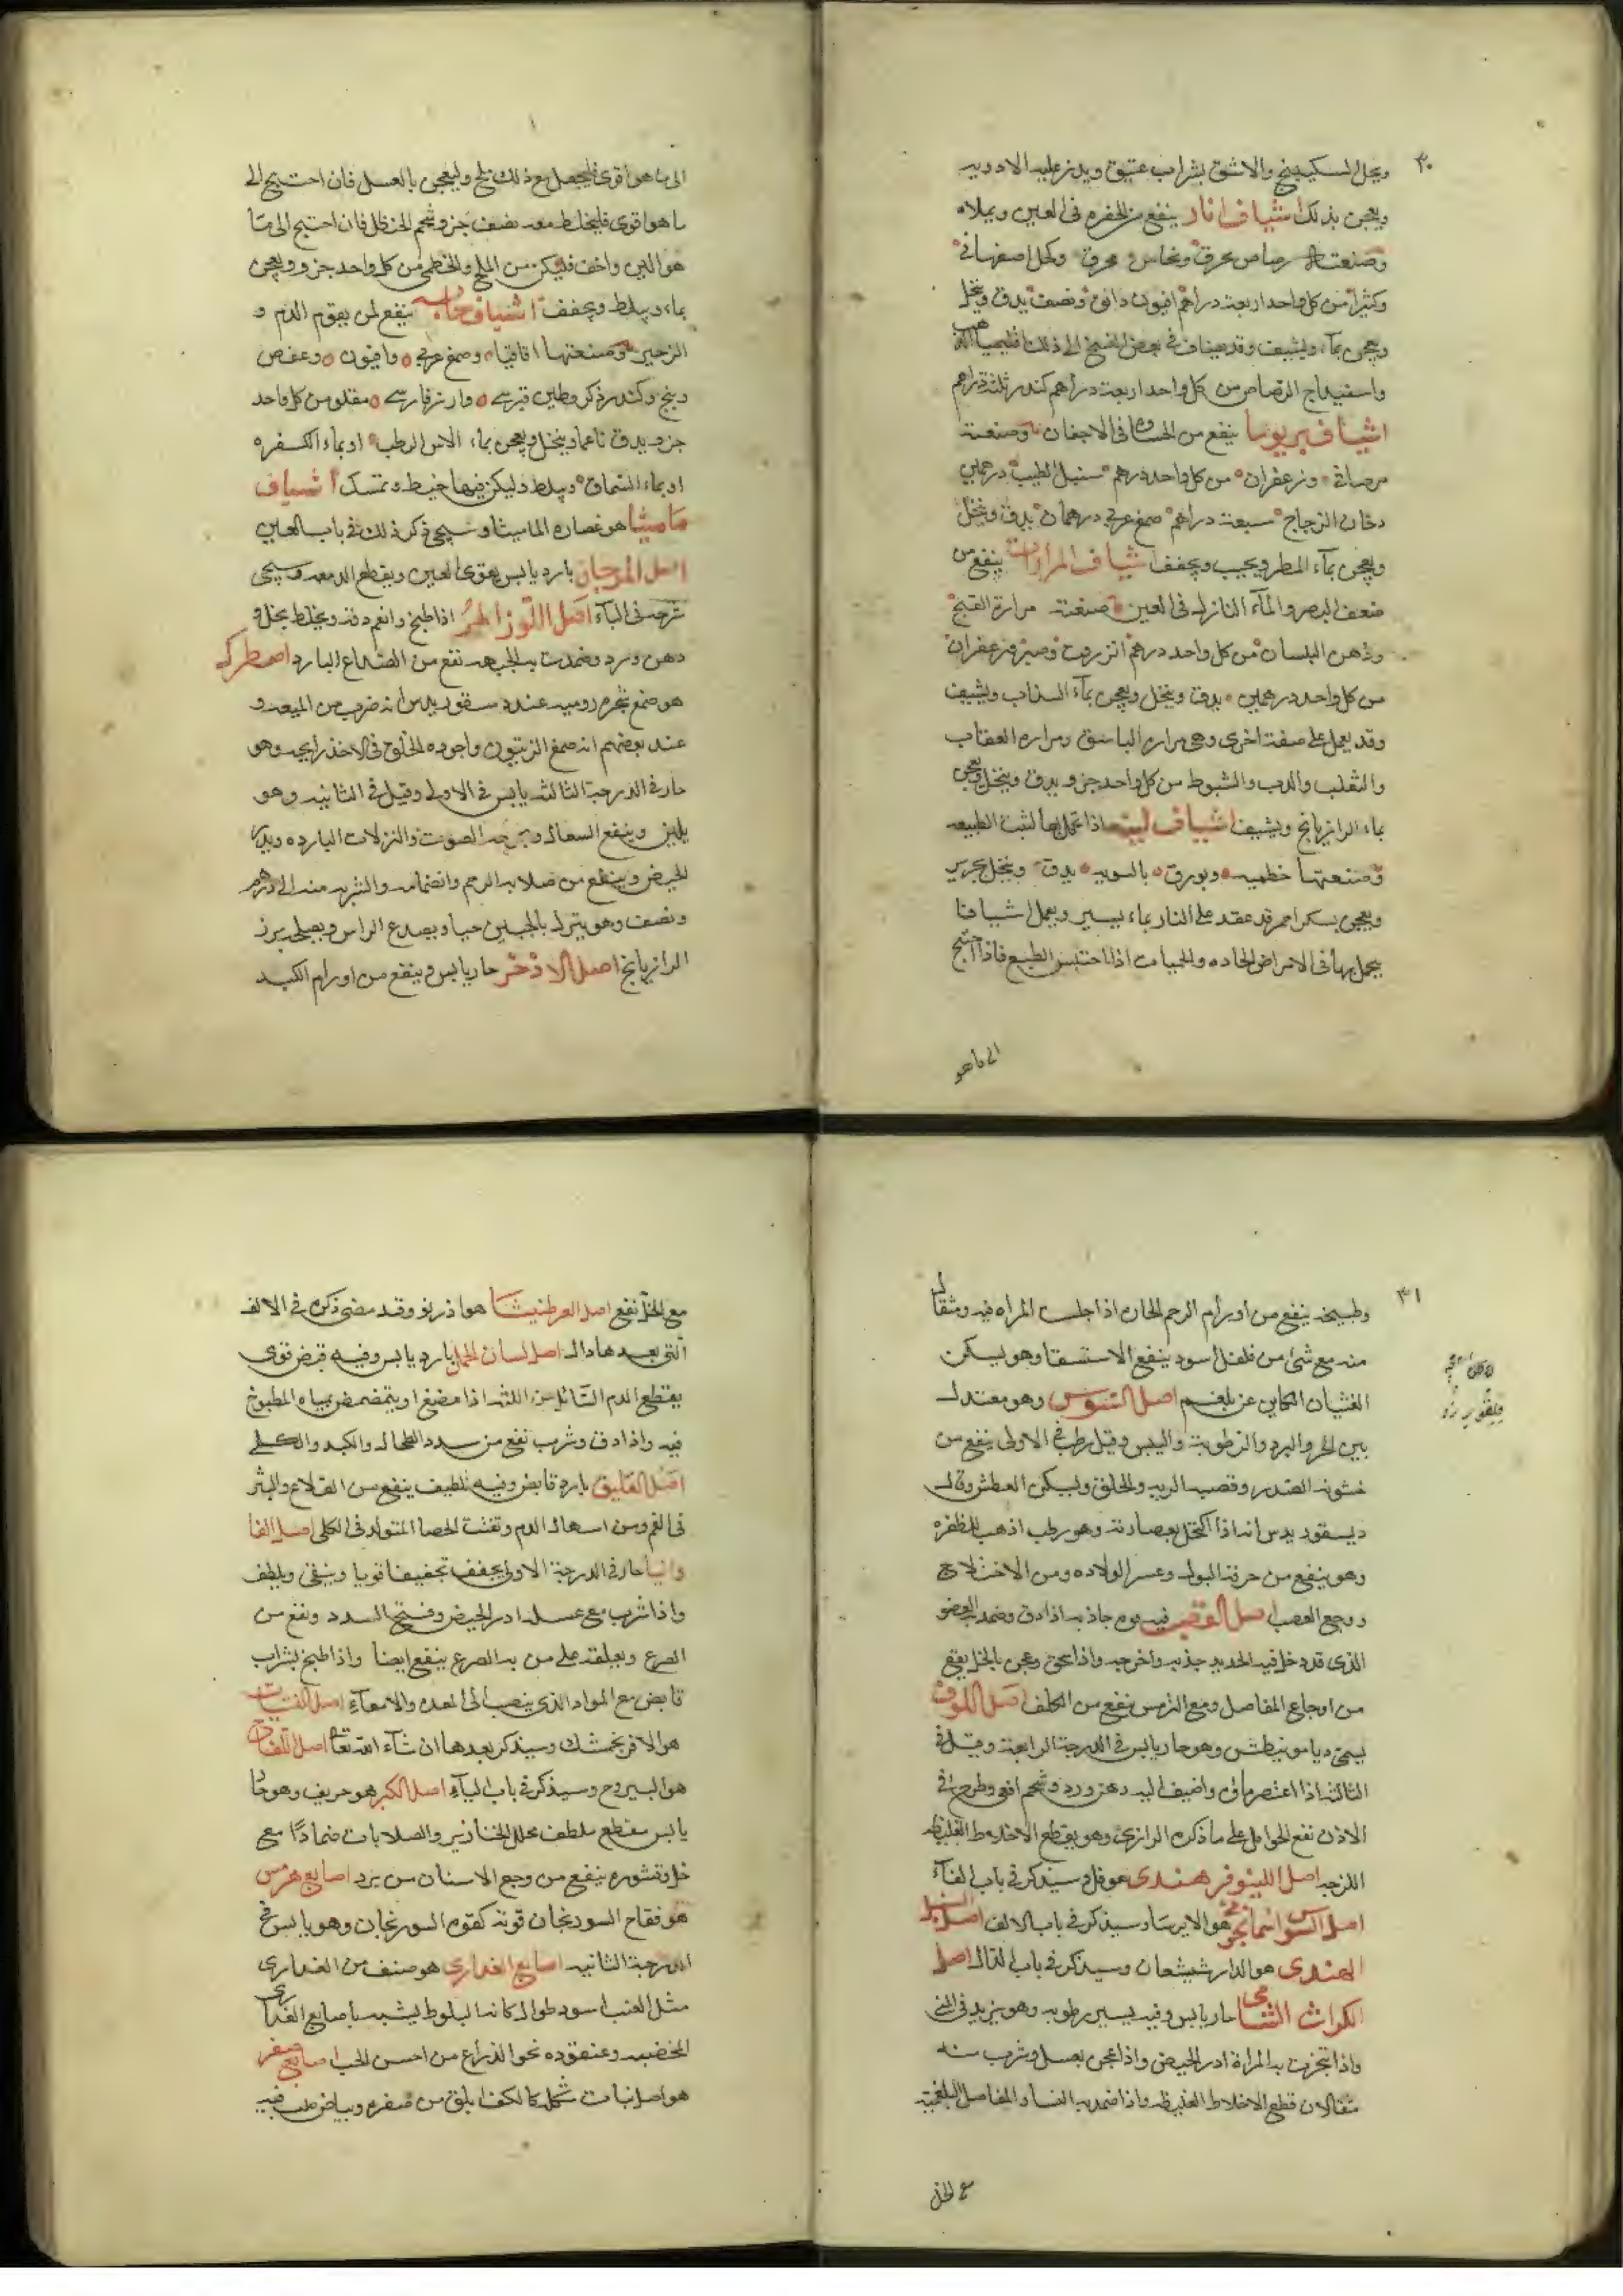 ٣٠
ويحل السكبينج والاشق بشراب عتيق ويذر عليه الادويه
ويعجن بذلك اشياف انار ينفع من الحفره فى العين ويملاه
وصنعته رصاص محرق ونحاس محرق وكحل اصفهانى
وكثيرا من كل واحد اربعة دراهم افيون دانق ونصف يدق وينخل
ويعجن بماء ويشيف وقد يضاف فى بعض النسخ الى ذلك اقليميا
واسفيداج الرصاص من كل واحد اربعة دراهم كندر ثلثة دراهم
اشياف بريوسا ينفع من الحساوه فى الاجفان وصنعته
مرصافى وزعفران من كل واحد درهم سنبل الطيب درهمين
دخان الزجاج سبعة دراهم صمغ عربى درهمان يدق وينخل
ويعجن بماء المطر ويحبب ويجفف اشياف المرارات ينفع من
ضعف البصر والماء النازل فى العين صنعته مرارة القبج
ودهن البلسان من كل واحد درهم انزروت وصبر وزعفران
من كل واحد درهمين يدق وينخل ويعجن بماء السذاب ويشيف
وقد يعمل على صفة اخرى وهى مراره الباشق ومراره العقاب
والثعلب والدب والشبوط من كل واحد جزو يدق وينخل ويعجن
بماء الرازيانج ويشيف اشياف لينه اذا تحمل بها لينت الطبيعه
وصنعتها خطميه وبورق بالسويه يدق وينخل بحرير
ويعجن بسكر احمر قد عقد على النار بماء يسير ويعمل اشيافا
يحمل بها فى الامراض الحاده والحميات اذا احتبس الطبع فاذا احتيج
الى ما هو
الى ما هو اقوى فليجعل مع ذلك ملح وليعجن بالعسل فان احتيج الى
ما هو اقوى فليخلط معه نصف جزو شحم الحنظل فان احتيج الى ما
هو الين واخف فليكن من الملح والخطمى من كل واحد جزو ويعجن
بماء ويبلط ويجفف اشياف ينفع لمن يقوم الدم و
الزحير وصنعتها اقاقيا وصمغ عربى وافيون وعفص
وبنج وكندر ذكر وطين قبرسى وارز فارسى مقلو من كل واحد
جزو يدق ناعما وينخل ويعجن بماء الاس الرطب او بماء الكسفره
او بماء السماق ويبلط وليكن فيها خيط وتمسك اشياف
ماميثا هو عصاره الماميثا وسيجى ذكر ذلك فى باب العين
اصل المرجان بارد يابس يقوى العين ويقطع الدمعه وسيجى
شرحه فى الباء اصل اللوز المر اذا طبخ وانعم دقه ويخلط بخل و
دهن ورد وضمدت به الجبهه نفع من الصداع البارد اصطرك
هو صمغ شجره روميه عند ديسقوريدس انه ضرب من الميعه و
عند بعضهم انه صمغ الزيتون واجوده الخلوج فى الاخذ رايحه وهو
حار فى الدرجة الثالثه يابس فى الاولى وقيل فى الثانيه وهو
يلين وينفع السعال وبحه الصوت والنزلات البارده ويدر
الحيض وينفع من صلابه الرحم وانضمامه والشربه منه الى درهم
ونصف وهو يترك بالجبلين حيا ويصدع الراس ويصلحه بزر
الرازيانج اصل الاذخر حار يابس وينفع من اورام الكبد
٣١
وطبيخه ينفع من اورام الرحم الحاره اذا جلست المراه فيه ومثقال
منه مع شئ من فلفل اسود ينفع الاستسقا وهو يسكن
الغثيان الكاين عن بلغم اصل السوس وهو معتدل
بين الحر والبرد والرطوبة واليبس وقيل رطب فى الاولى ينفع من
خشونه الصدر وقصبه الريه والحلق ويسكن العطش وقال
ديسقوريدس انه اذا اكتحل بعصارته وهو رطب اذهب الظفره
وهو ينفع من حرقه البول وعسر الولاده ومن الاختلاج
ووجع العصب اصل القصب فيه قوه جاذبه اذا دق وضمد به العضو
الذى قد دخل فيه الحديد جذبه واخرجه واذا سحق وعجن بالخل ينفع
من اوجاع المفاصل ومع الترمس ينفع من الكلف اصل اللوف
يسمى دياموبيطس وهو حار يابس فى الدرجة الرابعة وقيل فى
الثالثه اذا اعتصر ماؤه واضيف اليه دهن ورد وشحم افعى وطرح فى
الاذن نفع الحوامل على ما ذكره الرازى وهو يقطع الاخلاط الغليظه
اللزجه اصل اللينوفر هندى هو فل وسيذكر فى باب الفاء
اصل السوس اسمانجونى هو الايرسا وسيذكر فى باب الالف اصل السنبل
الهندى هو الدارشيشعان وسيذكر فى باب الدال اصل
الكراث الشامى حار يابس وفيه يسير رطوبه وهو يزيد فى المنى
واذا تبخرت به المراة ادر الحيض واذا عجن بعسل وشرب منه
مثقالان قطع الاخلاط الغليظه واذا ضمد به النسا والمفاصل البلغميه
مع الخل
مع الخل نفع اصل العرطنيثا هو اذريو وقد مضى ذكره فى الالف
التى بعدها دال اصل لسان الحمل بارد يابس وفيه قبض قوى
يقطع الدم السائل من اللثه اذا مضغ او يتمضمض بمياه المطبوخ
فيه واذا دق وشرب نفع من سدد الطحال والكبد والكلى
اصل العليق بارد قابض وفيه تلطيف ينفع من القلاع والبثر
فى الفم ومن اسهال الدم وتفتت الحصا المتولد فى الكلى اصل الفا
وانيا حار فى الدرجة الاولى يجفف تجفيفا قويا وينقى ويلطف
واذا شرب مع عسل ادر الحيض وفتح السدد ونفع من
الصرع وبعلقه على من به الصرع ينفع ايضا واذا طبخ بشراب
قابض مع المواد الذى ينصب الى المعده والامعاء اصل
هو الافرنجمشك وسيذكر بعدها ان شاء الله تعالى اصل اللفاح
هو اليبروح وسيذكر فى باب الياء اصل الكبر هو حريف وهو حار
يابس مقطع ملطف محلل الخنازير والصلابات ضمادا مع
خل وقشوره ينفع من وجع الاسنان من برد اصابع هرمس
هو فقاح السورنجان قوته كقوة السورنجان وهو يابس فى
الدرجة الثانيه اصابع العذارى هو صنف من العذارى
مثل العنب اسود طوال كانه البلوط يشبه باصابع العذارى
المخضبه وعنقوده نحو الذراع من احسن الحب اصابع صفر
هو اصل نبات شكله كالكف ابلق من صفره وبياض صلب فيه